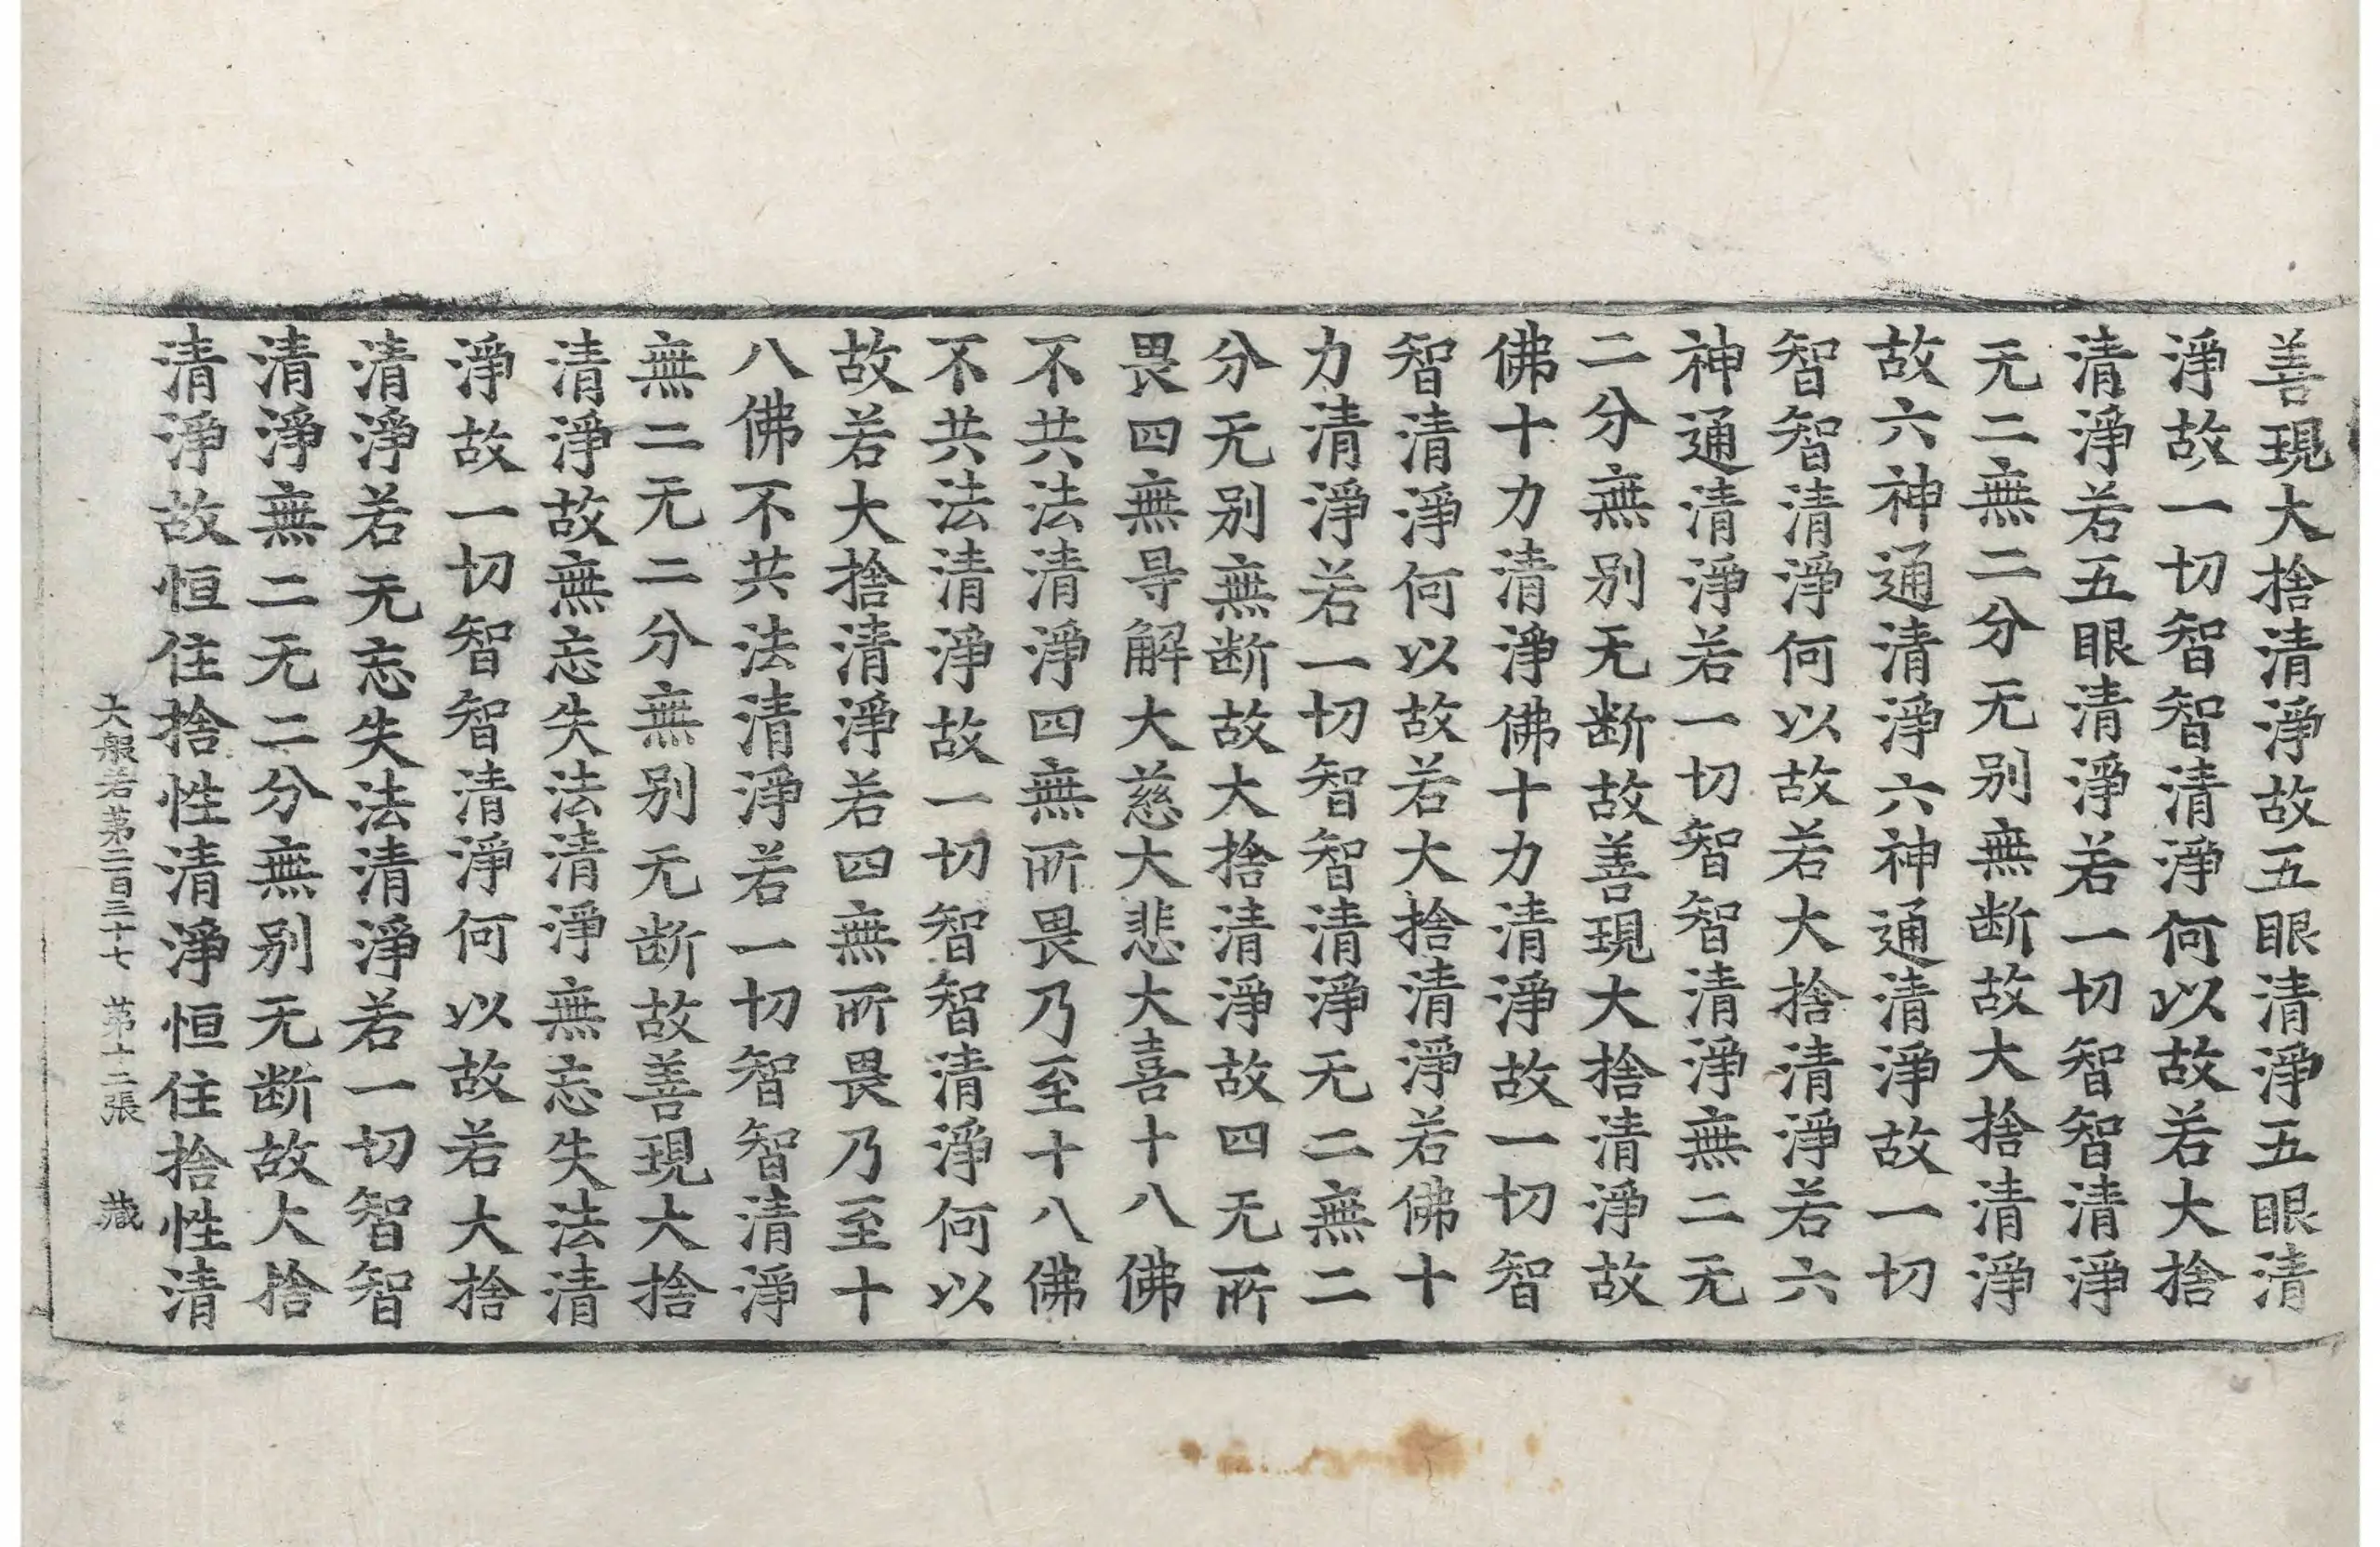 善現大捨清淨故五眼清淨五眼清
淨故一切智智清淨何以故若大捨
清淨若五眼清淨若一切智智清淨
无二無二分无别無断故大捨清淨
故六神通清淨六神通清淨故一切
智智清淨何以故若大捨清淨若六
神通清淨若一切智智清淨無二无
二分無别无断故善現大捨清淨故
佛十力清淨佛十力清淨故一切智
智清淨何以故若大捨清淨若佛十
力清淨若一切智智清淨无二無二
分无别無断故大捨清淨故四无所
畏四無导解大慈大悲大喜十八佛
不共法清淨四無所畏乃至十八佛
不共法清淨故一切智智清淨何以
故若大捨清淨若四無所畏乃至十
八佛不共法清淨若一切智智清淨
無二无二分無别无断故善現大捨
清淨故無忘失法清淨無忘失法清
淨故一切智智清淨何以故若大捨
清淨若无忘失法清淨若一切智智
清淨無二无二分無别无断故大捨
清淨故恒住捨性清淨恒住捨性清
大般若第二百三十七 第十二張 藏